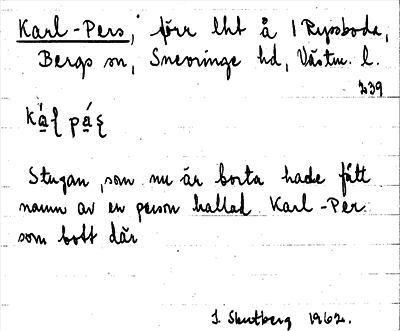 Karl-Pers, förr lht å 1 Ryssboda,
Bergs sn, Snevringe hd, Västm. l.
239
Stugan, som nu är borta hade fått
namn av en person kallad Karl-Per
som bott där
J. Skutberg 1962.